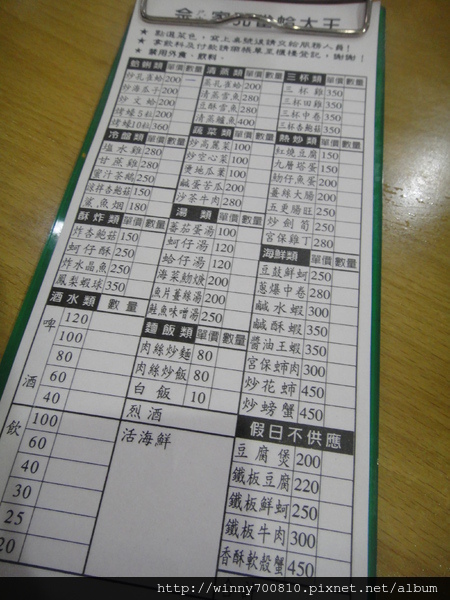 大王
★ 點選菜色，寫上桌號後請交給服務人員！
★ 禁用外食，飲料。
蛤蜊類 單價 數量
炒孔雀蛤 200 一
炒海瓜子 200
炒文蛤 200
烤蠔5粒 200
烤蠔10粒 360
冷盤類 單價 數量
塩水雞 280
甘蔗雞 280
蜜汁茶鵝 250
涼拌杏鮑菇 150
鯊魚烟 180
酥炸類 單價 數量
炸杏鮑菇 150
蚵仔酥 250
炸水晶魚 250
鳳梨蝦球 350
酒水類 數量
啤酒
120
100
80
60
40
飲
100
60
40
30
25
20
清蒸類 單價 數量
蒸孔雀蛤 200
清蒸雪魚 280
豆酥雪魚 280
清蒸鱸魚 400
蔬菜類 單價 數量
炒高麗菜 100
炒空心菜 100
燙地瓜葉 100
鹹蛋苦瓜 200
沙茶牛肉 280
湯類 單價 數量
蕃茄蛋湯 100
蚵仔湯 120
蛤仔湯 120
海菜魩魩 200
魚片薑絲湯 200
鮭魚味噌湯 250
麵飯類 單價 數量
肉絲炒麵 80
肉絲炒飯 80
白飯 10
烈酒
活海鮮
三杯類 單價 數量
三杯雞 350
三杯田雞 350
三杯中卷 350
三杯杏鮑菇 350
熱炒類 單價 數量
紅燒豆腐 150
九層塔蛋 150
魩仔魚蛋 200
薑絲大腸 200
五更腸旺 250
炒劍筍 250
宮保雞丁 280
海鮮類 單價 數量
豆鼓鮮蚵 250
蔥爆中卷 280
鹹水蝦 300
鹹酥蝦 350
醬油王蝦 350
宮保蟳肉 300
炒花蟳 450
炒螃蟹 450
假日不供應
豆腐煲 200
鐵板豆腐 220
鐵板鮮蚵 250
鐵板牛肉 300
香酥軟殼蟹 450
http://winny700810.pixnet.net/album